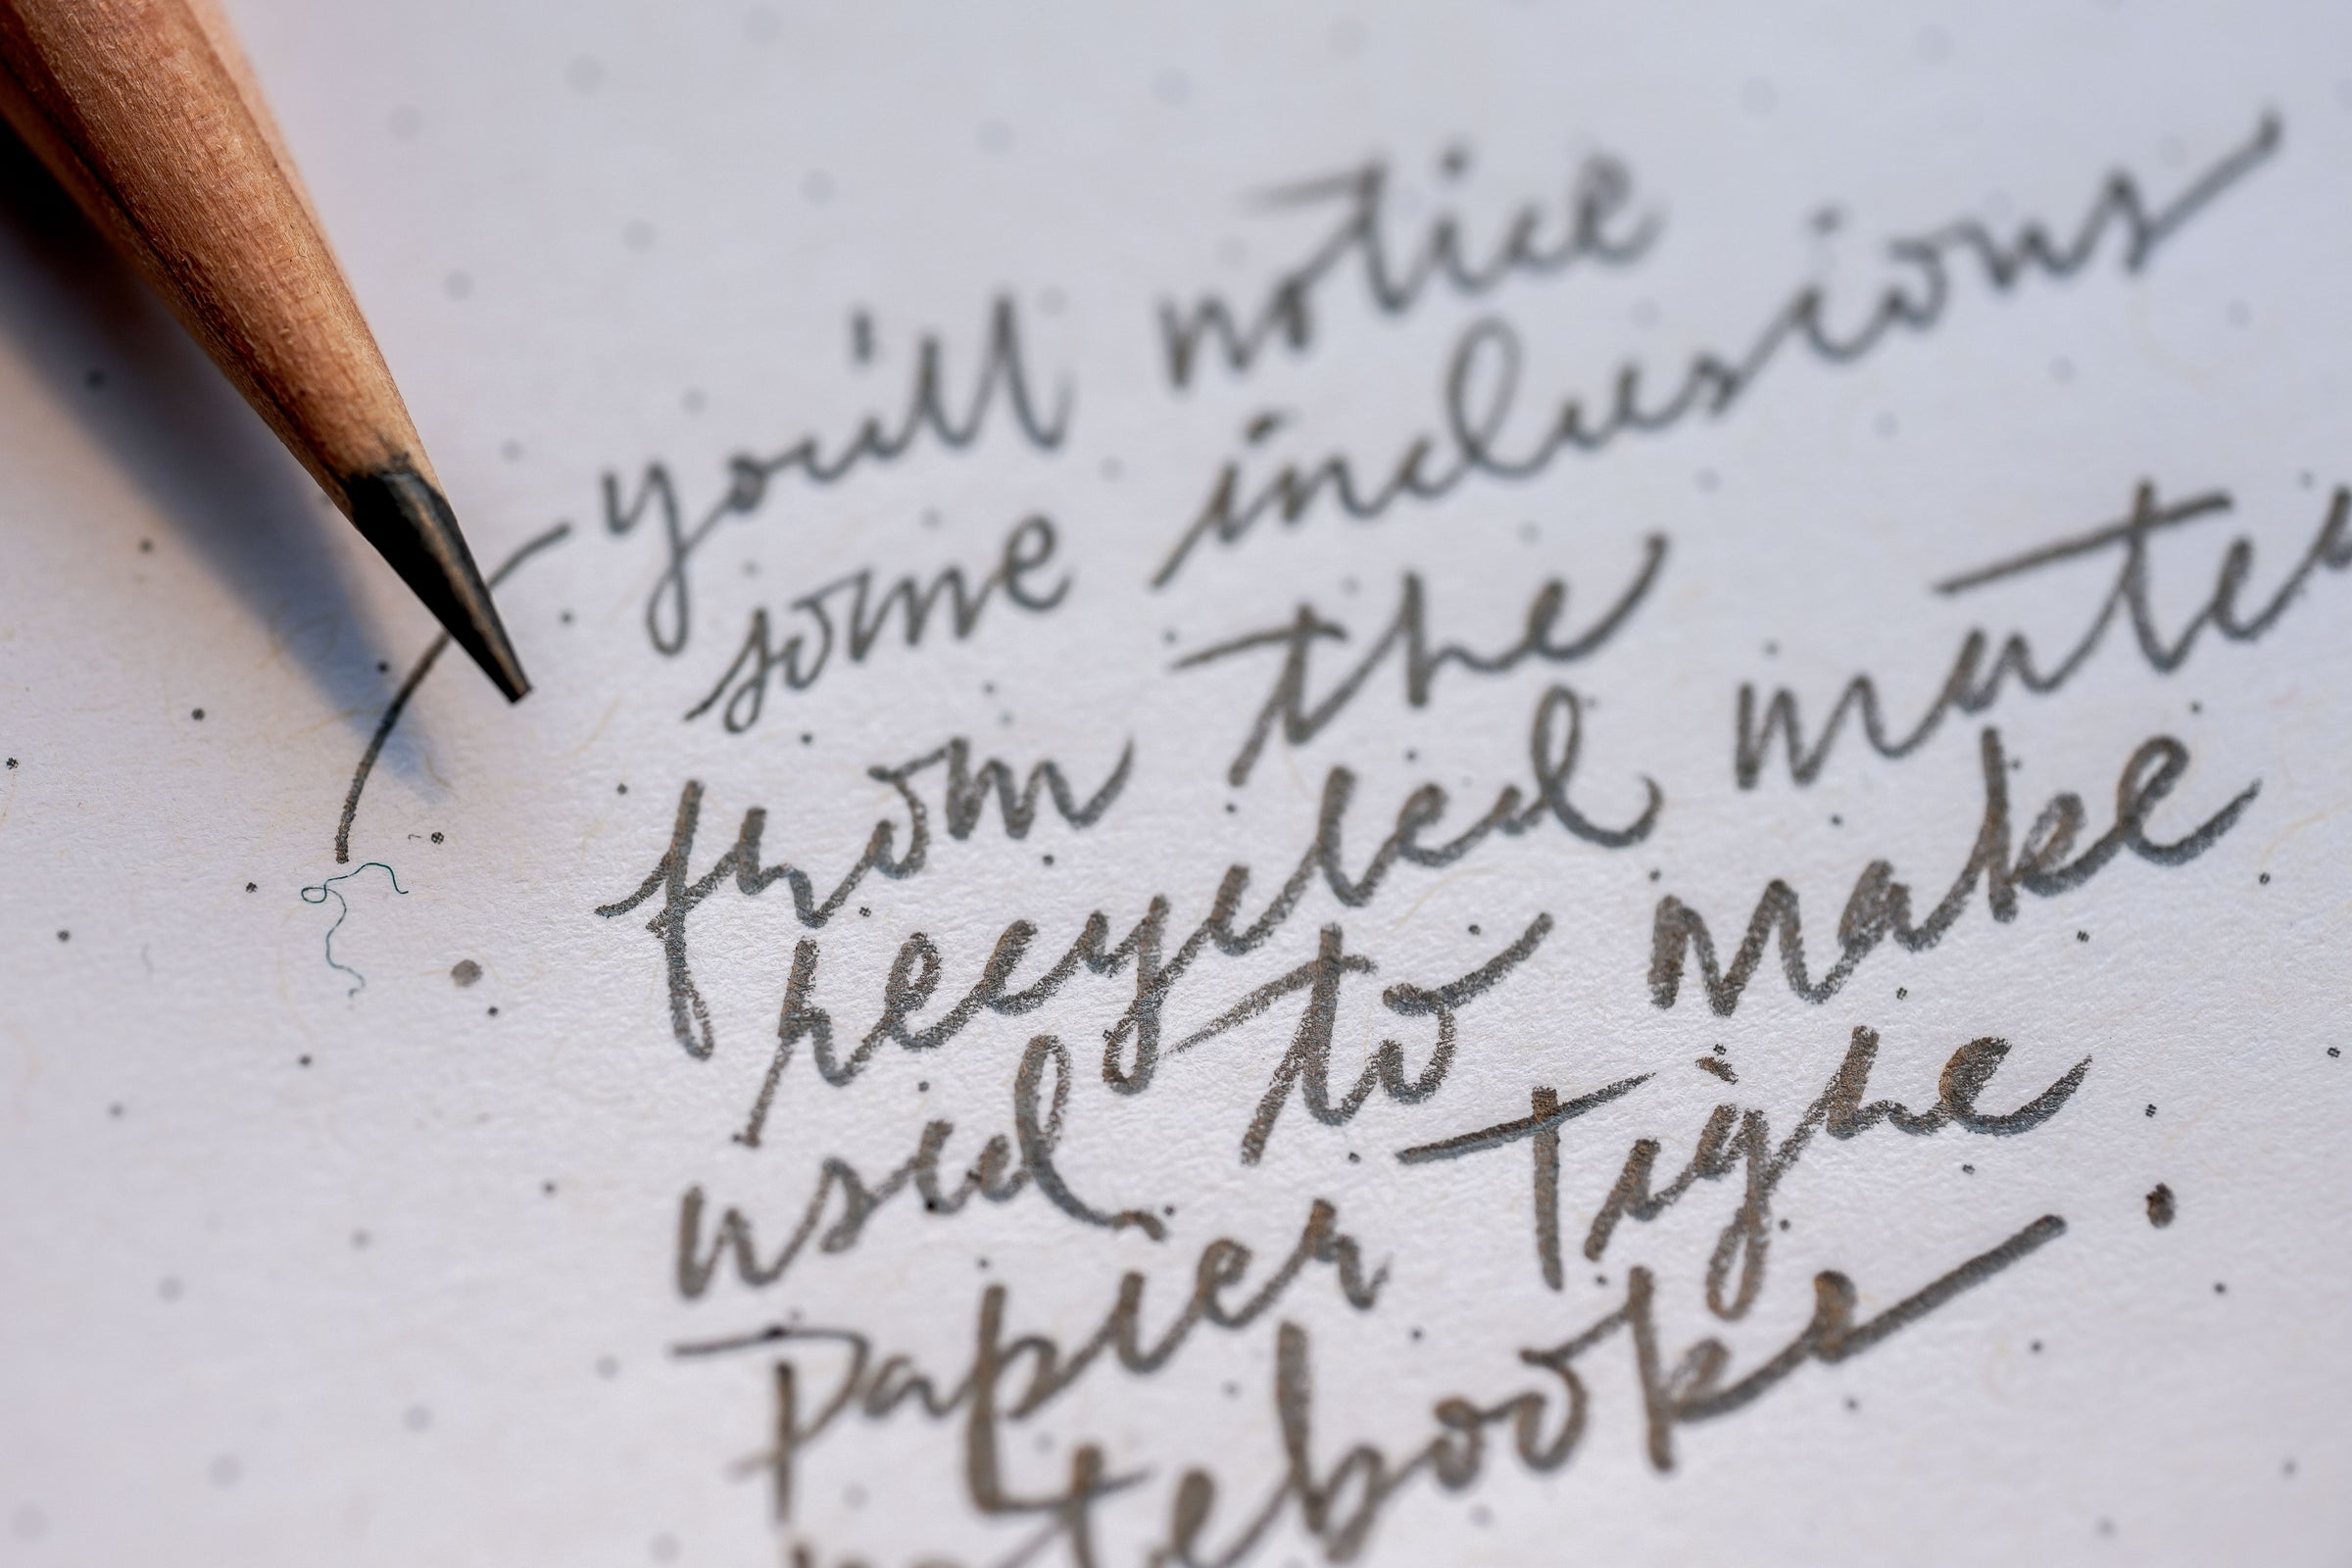 you'll notice
some inclusions
from the
recycled mate
used to make
Papier Tigre
notebooks.